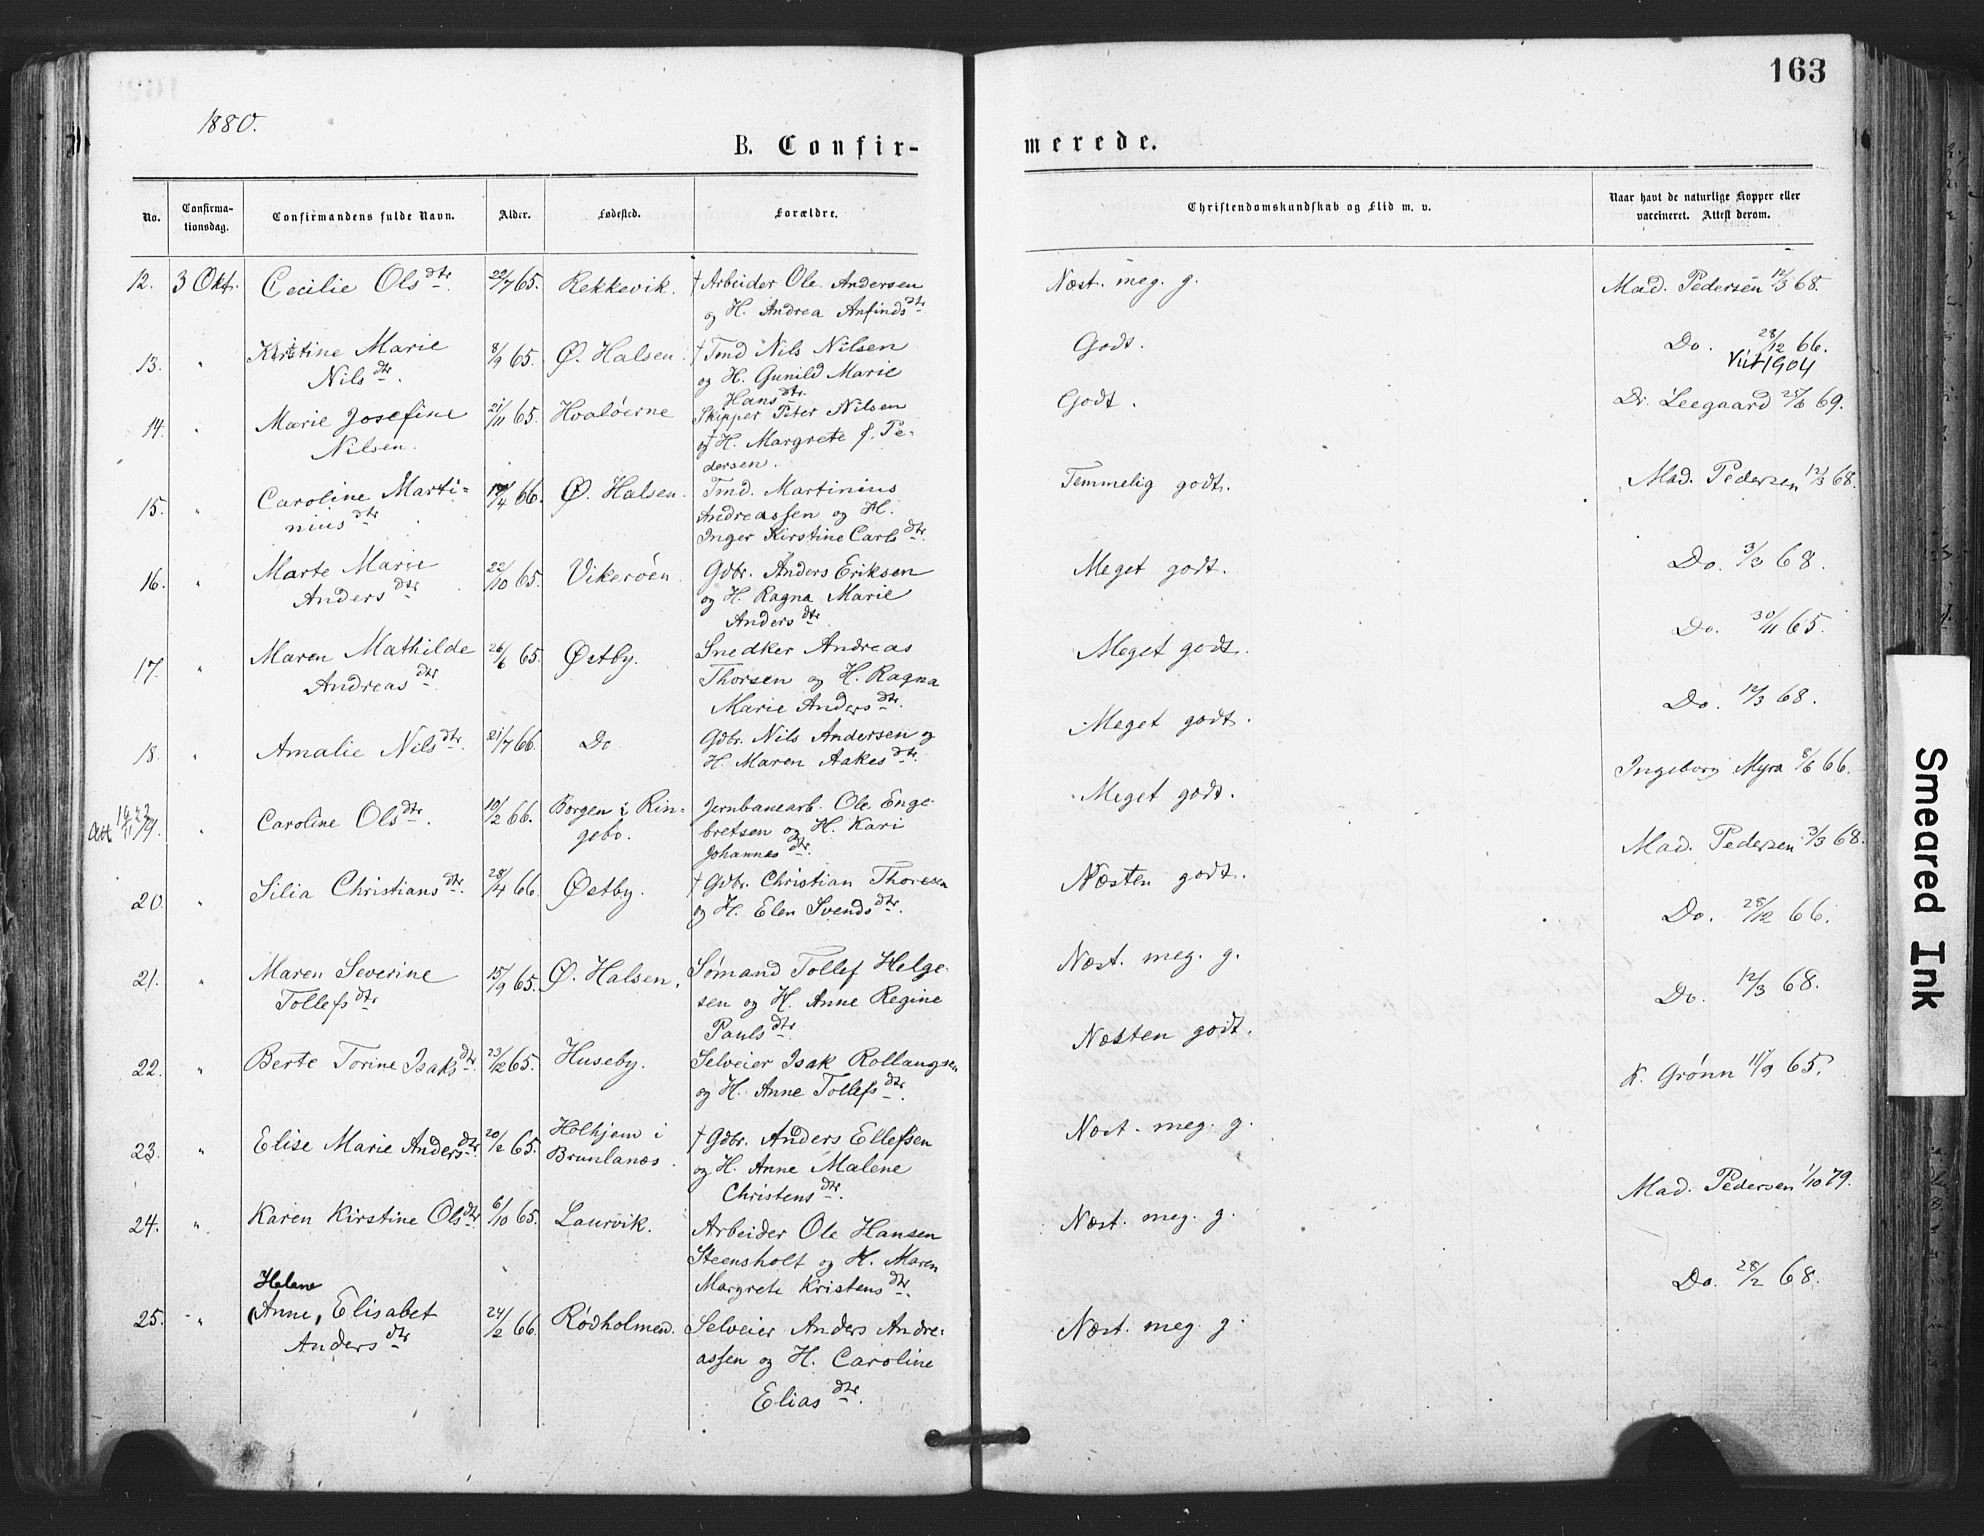 163
1880.
B. Confir-
merede.
No.
Confirma-
tionsdag.
Confirmandens fulde Navn.
Alder.
Fødested.
Forældre.
Christendomskundskab og Flid m. v.
Naar havt de naturlige Kopper eller
vaccineret. Attest derom.
12. 3 Okt. Cecilie Olsdtr. 22/7 65. Rekkevik. † Arbeider Ole Andersen
og H. Andrea Anfindsdtr.
Næst. meg. g. Mad. Pedersen 12/3 68.
13. " Kirstine Marie
Nilsdtr. 8/9 65. Ø. Halsen. † Tmd Nils Nilsen
og H. Gunild Marie
Hansdtr.
Godt. Do. 28/12 66.
1904
14. " Marie Josefine
Nilsen. 21/11 65. Hvaløerne Skipper Peter Nilsen
og † H. Margrete f. Pe-
dersen.
Godt. Dr. Leegaard 25/6 69.
15. " Caroline Marti-
niusdtr. 17/4 66. Ø. Halsen. Tmd. Martinius
Andreassen og H.
Inger Kirstine Carlsdtr.
Temmelig godt. Mad. Pedersen 12/3 68.
16. " Marte Marie
Andersdtr. 22/10 65. Vikerøen. Gdbr. Anders Eriksen
og H. Ragna Marie
Andersdtr.
Meget godt. Do. 3/3 68.
17. " Maren Mathilde
Andreasdtr. 26/6 65. Østby. Snedker Andreas
Thorsen og H. Ragna
Marie Andersdtr.
Meget godt. Do. 30/11 65.
18. " Amalie Nilsdtr. 21/7 66. Do Gdbr. Nils Andersen og
H. Maren Aakesdtr.
Meget godt. Do. 12/3 68.
Att 19. " Caroline Olsdtr. 10/2 66. Borgen i Rin-
gebo. Jernbanearb. Ole Enge-
bretsen og H. Kari
Johannesdtr.
Meget godt. Ingeborg Myra 8/6 66.
20. " Silia Christiansdtr. 28/4 66. Østby. † Gdbr. Christian Thoresen
og H. Elen Svendsdtr.
Næsten godt. Mad. Pedersen 3/3 68.
21. " Maren Severine
Tollefsdtr 15/9 65. Ø. Halsen. Sømand Tollef Helge-
sen og H. Anne Regine
Paulsdtr.
Næst. meg. g. Do. 28/12 66.
22. " Berte Torine Isaksdtr. 23/12 65. Huseby. Selveier Isak Rollaugsen
og H. Anne Tollefsdtr.
Næsten godt. Do. 12/3 68.
23. " Elise Marie Andersdtr. 20/2 65. Holhjem i
Brunlanæs. † Gdbr. Anders Ellefsen
og H. Anne Malene
Christensdtr.
Næst. meg. g. K. Grønn 11/9 65.
24. " Karen Kirstine Olsdtr. 6/10 65. Laurvik. Arbeider Ole Hansen
Steensholt og H. Maren
Margrete Kristensdtr.
Næst. meg. g. Mad. Pedersen 1/10 79.
25. " Helene
Anne, Elisabet
Andersdtr 24/2 66. Rødholmen. Selveier Anders Andre-
assen og H. Caroline
Eliasdtr.
Næst. meg. g. Do. 28/2 68.
Smeared Ink